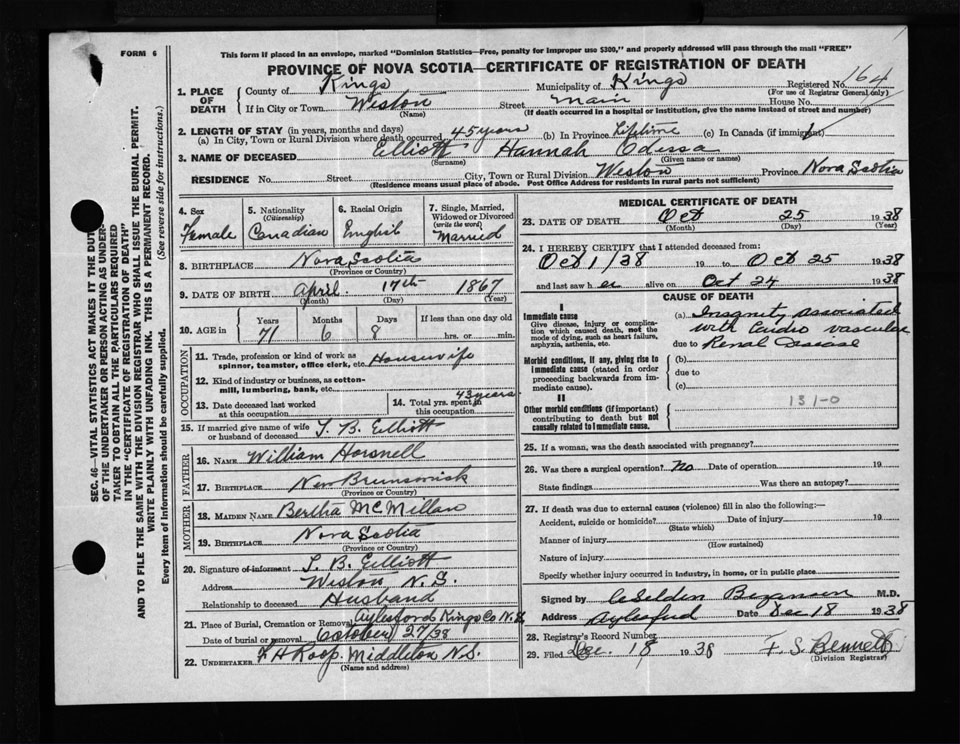 FORM 6
This form if placed in an envelope, marked "Dominion Statistics—Free, penalty for improper use $300," and properly addressed will pass through the mail "FREE"
PROVINCE OF NOVA SCOTIA—CERTIFICATE OF REGISTRATION OF DEATH
1. PLACE OF DEATH County of Kings Municipality of Kings Registered No. 164
(For use of Registrar General only)
If in City or Town Weston Street main House No.
(Name) (If death occurred in a hospital or institution, give the name instead of street and number)
2. LENGTH OF STAY (in years, months and days)
(a) In City, Town or Rural Division where death occurred 45 years (b) In Province Lifetime (c) In Canada (if immigrant)
3. NAME OF DECEASED Elliott Hannah Odessa
(Surname) (Given name or names)
RESIDENCE No. Street City, Town or Rural Division Weston Province Nova Scotia
(Residence means usual place of abode. Post Office Address for residents in rural parts not sufficient)
4. Sex Female
5. Nationality (Citizenship) Canadian
6. Racial Origin English
7. Single, Married, Widowed or Divorced (write the word) Married
8. BIRTHPLACE Nova Scotia
(Province or Country)
9. DATE OF BIRTH April 17th 1867
(Month) (Day) (Year)
10. AGE in Years Months Days If less than one day old
71 6 8 hrs. or min.
OCCUPATION
11. Trade, profession or kind of work as spinner, teamster, office clerk, etc. Housewife
12. Kind of industry or business, as cotton-mill, lumbering, bank, etc.
13. Date deceased last worked at this occupation
14. Total yrs. spent in this occupation 43 years
15. If married give name of wife or husband of deceased T. B. Elliott
FATHER
16. NAME William Horsnell
17. BIRTHPLACE New Brunswick
(Province or Country)
MOTHER
18. MAIDEN NAME Bertha McMillan
19. BIRTHPLACE Nova Scotia
(Province or Country)
20. Signature of informant T. B. Elliott
Address Weston N.S.
Relationship to deceased Husband
21. Place of Burial, Cremation or Removal Aylesford Kings Co N.S.
Date of burial or removal October 27/38
22. UNDERTAKER F H Roop Middleton N.S.
(Name and address)
MEDICAL CERTIFICATE OF DEATH
23. DATE OF DEATH Oct 25 1938
(Month) (Day) (Year)
24. I HEREBY CERTIFY that I attended deceased from:
Oct 1/38 19 to Oct 25 1938
and last saw h er alive on Oct 24 1938
CAUSE OF DEATH
I
Immediate cause
Give disease, injury or complication which caused death, not the mode of dying, such as heart failure, asphyxia, asthenia, etc.
(a) Insanity associated
with Cardio vascular
due to Renal disease
Morbid conditions, if any, giving rise to immediate cause (stated in order proceeding backwards from immediate cause).
(b)
due to
(c)
II
Other morbid conditions (if important) contributing to death but not causally related to immediate cause.
131-0
25. If a woman, was the death associated with pregnancy?
26. Was there a surgical operation? No Date of operation 19
State findings Was there an autopsy?
27. If death was due to external causes (violence) fill in also the following:—
Accident, suicide or homicide? Date of injury 19
(State which)
Manner of injury
(How sustained)
Nature of injury
Specify whether injury occurred in industry, in home, or in public place
Signed by Selden Bezanson M.D.
Address Aylesford Date Dec 18 1938
28. Registrar's Record Number
29. Filed Dec. 18 1938 F. S. Bennett
(Division Registrar)
SEC. 46—VITAL STATISTICS ACT MAKES IT THE DUTY
OF THE UNDERTAKER OR PERSON ACTING AS UNDER-
TAKER TO OBTAIN ALL THE PARTICULARS REQUIRED
IN THE "CERTIFICATE OF REGISTRATION OF DEATH"
AND TO FILE THE SAME WITH THE DIVISION REGISTRAR WHO SHALL ISSUE THE BURIAL PERMIT.
WRITE PLAINLY WITH UNFADING INK. THIS IS A PERMANENT RECORD.
Every item of information should be carefully supplied. (See reverse side for instructions.)